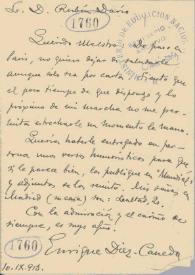 Sr. D. Rubén Darío
1760
Querido Maestro: De paso en
París, no quiero dejar de saludarle
aunque sólo sea por carta: siento que
el poco tiempo de que dispongo y lo
próximo de mi marcha no me per-
mita estrecharle un momento la mano.
Quería haberle entregado en per-
sona unos versos humorísticos para que
si le parece bien, los publique en Mundial,
y adjuntos se los remito. Mis señas, en
Madrid (mi casa) son:
Con la admiración y el cariño de
siempre, es muy suyo.
Enrique Díez-Canedo
1760
10.IX.913.